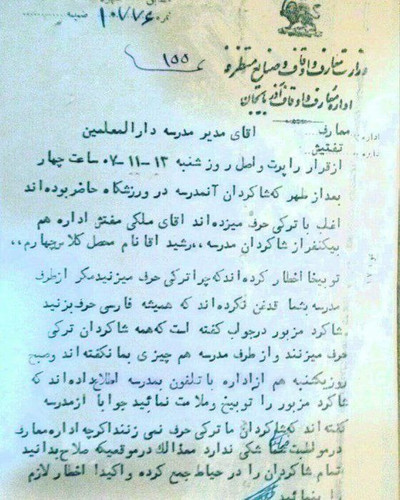 نمره ۱۰۷۷۶ ضمیمه
۱۵۵
وزارت معارف و اوقاف و صنایع مستظرفه
اداره معارف و اوقاف آذربایجان
اداره معارف
دایره تفتیش
آقای مدیر مدرسه دارالمعلمین
از قرار راپرت واصل روز شنبه ۱۳-۱۱-۰۷ ساعت چهار
بعد از ظهر که شاگردان آنمدرسه در ورزشگاه حاضر بوده اند
اغلب با ترکی حرف میزده اند آقای ملکی مفتش اداره هم
بیکنفر از شاگردان مدرسه ،،رشید آقا نام محصل کلاس چهارم،،
توبیخا اخطار کرده اند که چرا ترکی حرف میزنید مگر از طرف
مدرسه بشما قدغن نکرده اند که همیشه فارسی حرف بزنید
شاگرد مزبور در جواب گفته است که همه شاگردان ترکی
حرف میزنند و از طرف مدرسه هم چیزی بما نگفته اند و صبح
روز یکشنبه هم از اداره با تلفون بمدرسه اطلاع داده اند که
شاگرد مزبور را توبیخ و ملامت نمائید جوابا از مدرسه
گفته اند که شاگردان ما ترکی حرف نمی زنند اگرچه اداره معارف
در موظبت شما شکی ندارد معذالک در موقعیکه صلاح بدانید
تمام شاگردان را در حیاط جمع کرده و اکیدا اخطار لازم
بنمائید